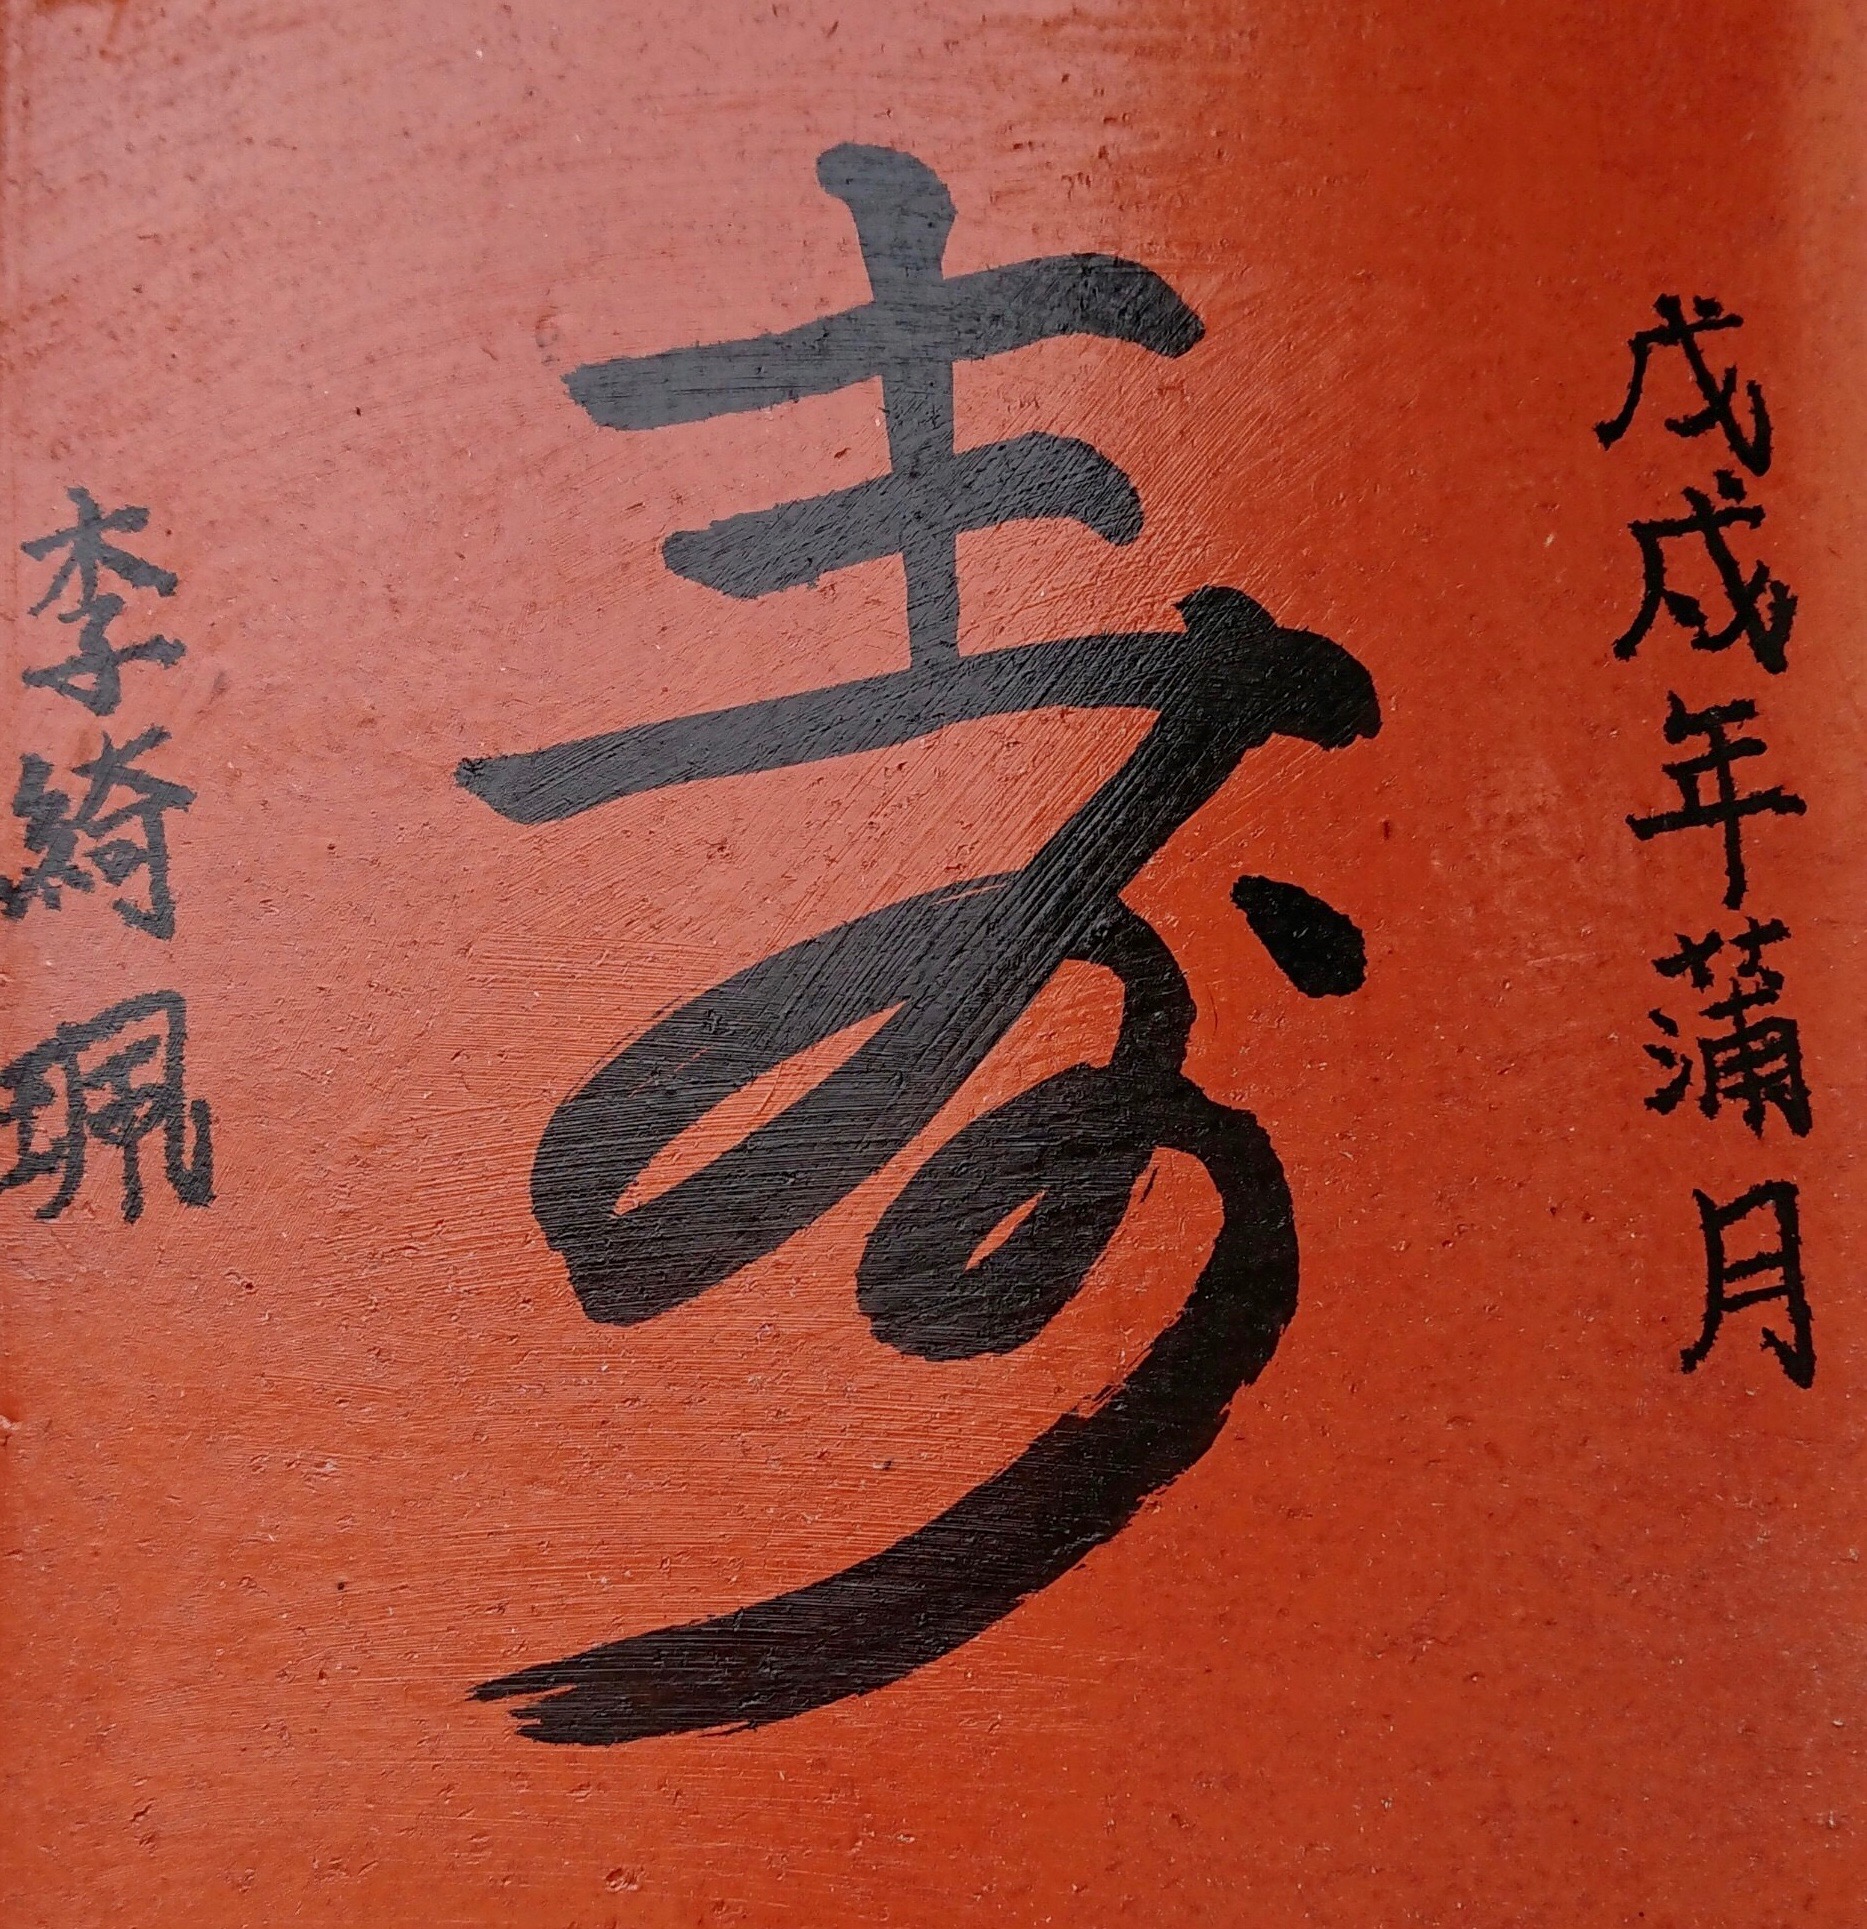 戊戌年蒲月
壽
李綺珮